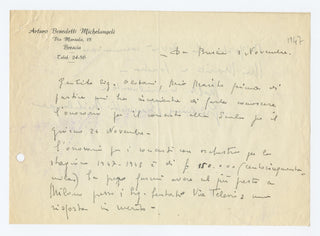 Arturo Benedetti Michelangeli
Via Marsala, 15
Brescia
Telef. 24-56
1947
Da Brescia 8 Novembre.
Gentile Sig. Oldani, mio marito prima di
partire mi ha incaricata di farle conoscere
l'onorario per il concerto alla Scala per il
giorno 24 Novembre.
L'onorario per i concerti con orchestra per la
stagione 1947-1948 è di £ 150.000 (centocinquanta
mila) La prego farmi avere al più presto a
Milano presso i Sig. Via Telesio una
risposta in merito.